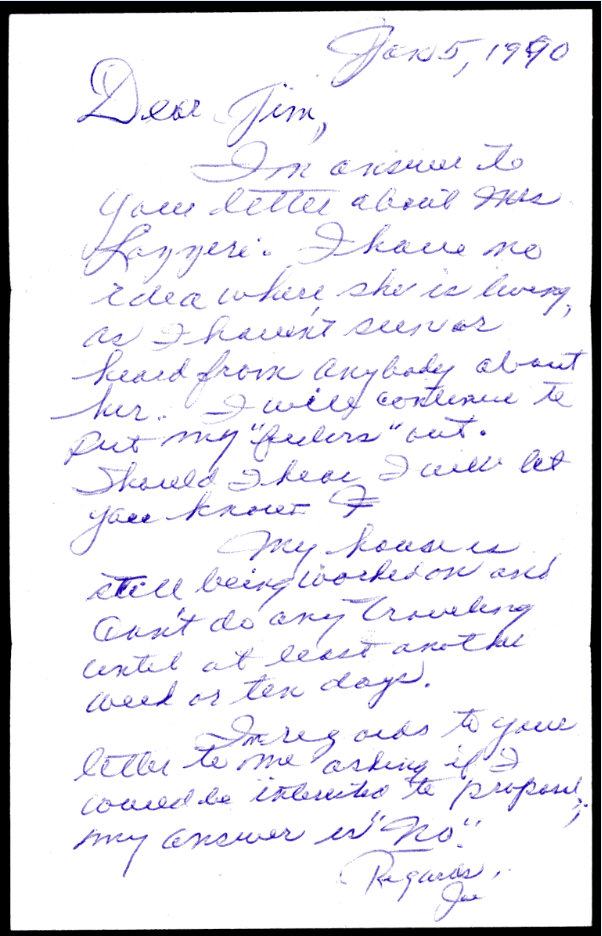 Jan 5, 1990
Dear Jim,
In answer to
your letter about Mrs
Lazzeri. I have no
idea where she is living,
as I haven't seen or
heard from anybody about
her. I will continue to
put my "feelers" out.
Should I hear I will let
you know
My house is
still being worked on and
can't do any traveling
until at least another
week or ten days.
In regards to your
letter to me asking if I
would be interested to
my answer is "No".
Regards,
Joe